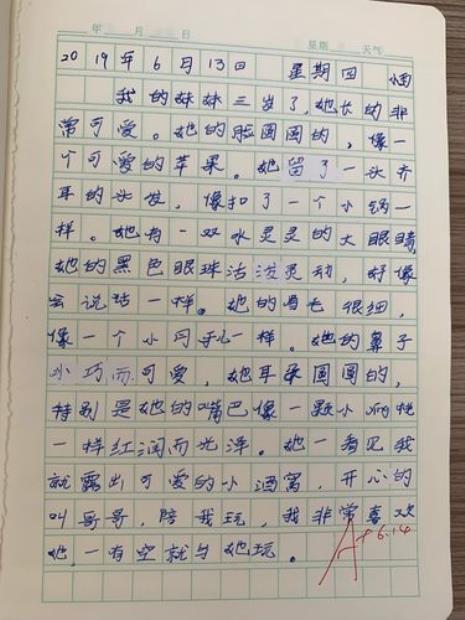 年 月 日 星期 天气
2019年6月13日 星期四
我的妹妹三岁了,她长的非
常可爱。她的脸圆圆的,像一
个可爱的苹果。她留了一头齐
耳的头发,像扣了一个小锅一
样。她有一双水灵灵的大眼睛
她的黑色眼珠活泼灵动,好像
会说话一样。她的眉毛很细,
像一个小月 一样。她的鼻子
小巧而可爱,她耳朵圆圆的,
特别是她的嘴巴像一颗小 桃
一样红润而光泽。她一看见我
就露出可爱的小酒窝,开心的
叫哥哥,陪我玩,我非常喜欢
她,一有空就与她玩。
A+ 6.14